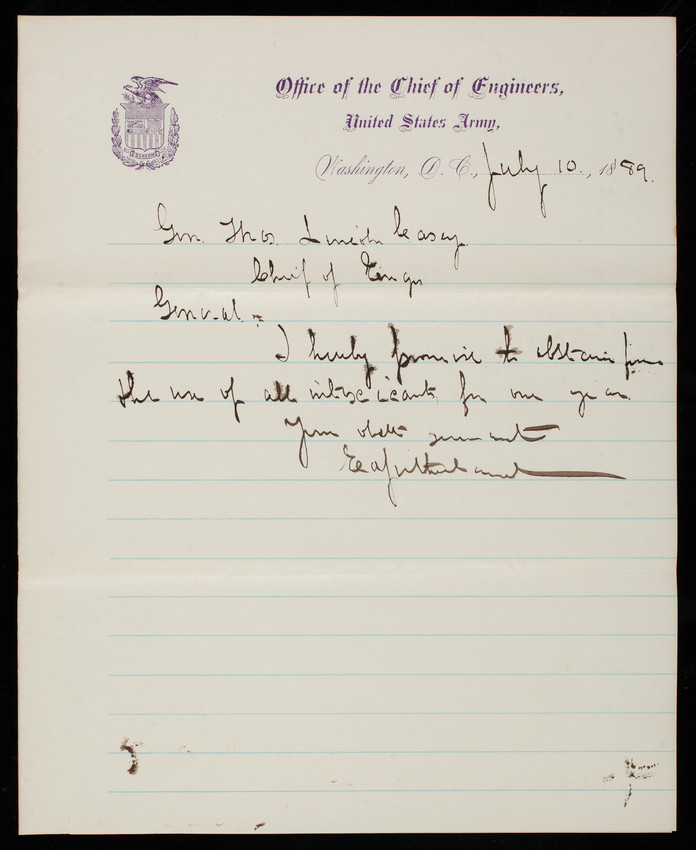 Office of the Chief of Engineers,
United States Army,
Washington, D. C., July 10, 1889.
Gen. Thos. Lincoln Casey
Chief of Engrs
General:-
I hereby promise to abstain from
the use of all intoxicants for one year.
Your obdt servant